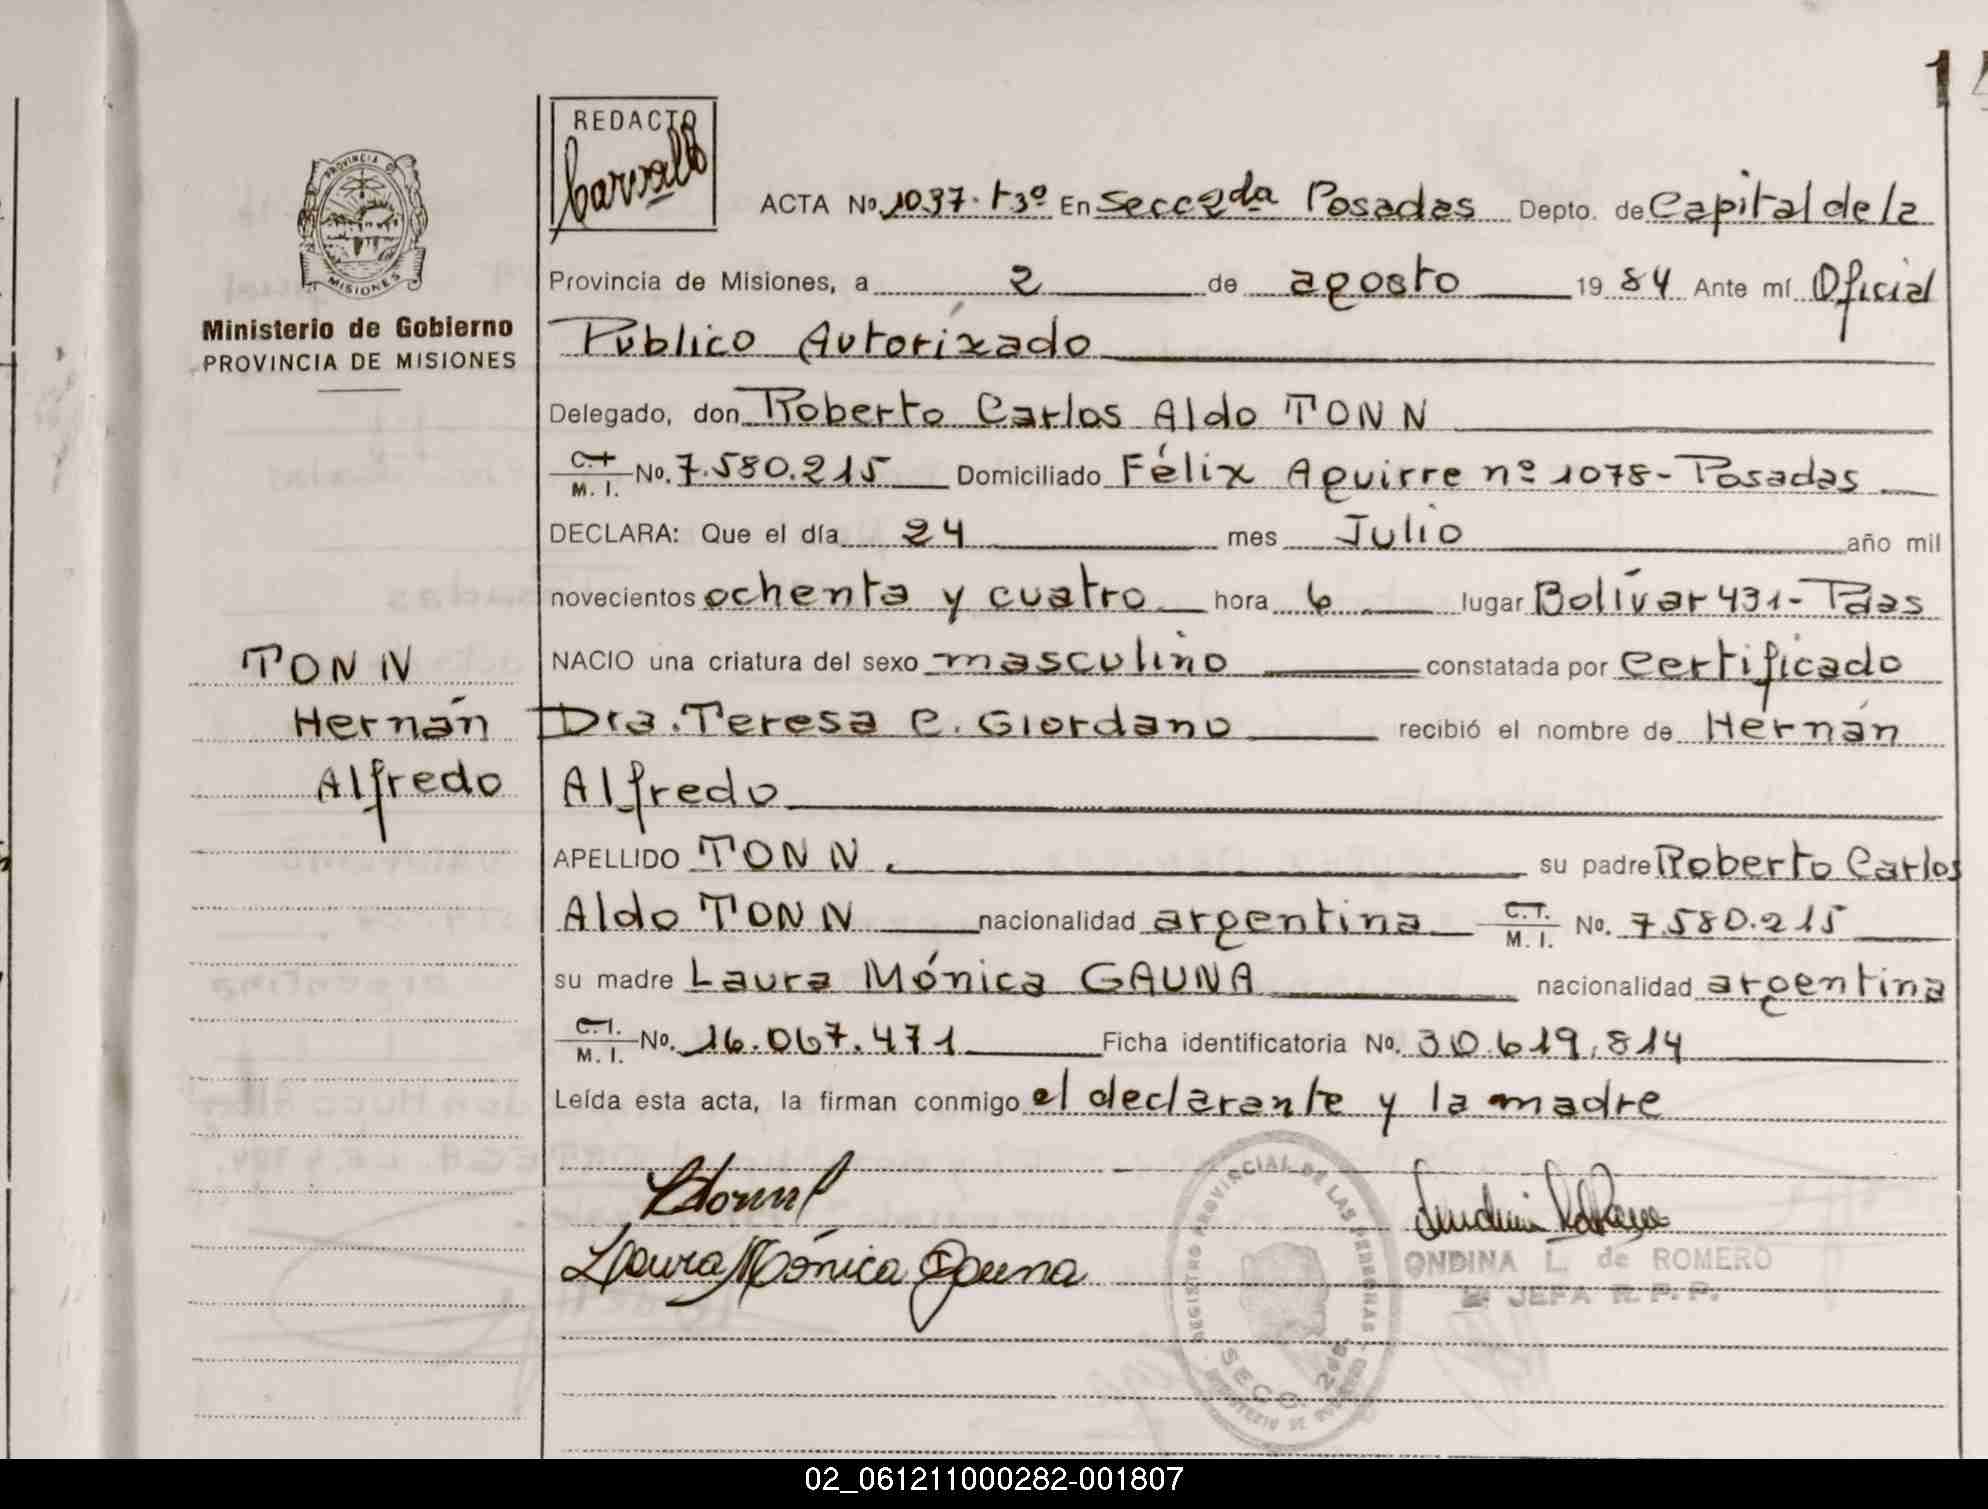 14
REDACTO
Carvallo
PROVINCIA DE
MISIONES
Ministerio de Gobierno
PROVINCIA DE MISIONES
ACTA No. 1037. t3º En Secc 2da Posadas Depto. de Capital de la
Provincia de Misiones, a 2 de agosto 19 84 Ante mí Oficial
Público Autorizado
Delegado, don Roberto Carlos Aldo TONN
C.I. M. I. No. 7.580.215 Domiciliado Félix Aguirre nº 1078- Posadas
DECLARA: Que el día 24 mes Julio año mil
novecientos ochenta y cuatro hora 6 lugar Bolívar 431- Pdas
NACIO una criatura del sexo masculino constatada por certificado
Dra. Teresa C. Giordano recibió el nombre de Hernán
Alfredo
TONN
Hernán
Alfredo
APELLIDO TONN. su padre Roberto Carlos
Aldo TONN nacionalidad argentina C.I. M. I. No. 7.580.215
su madre Laura Mónica GAUNA nacionalidad argentina
C.I. M. I. No. 16.067.471 Ficha identificatoria No. 30.619.814
Leída esta acta, la firman conmigo el declarante y la madre
Laura Mónica Gauna
REGISTRO PROVINCIAL DE LAS PERSONAS
SECC. 2da.
MINISTERIO DE GOBIERNO
ONDINA L. de ROMERO
JEFA R. P. P.
02_061211000282-001807